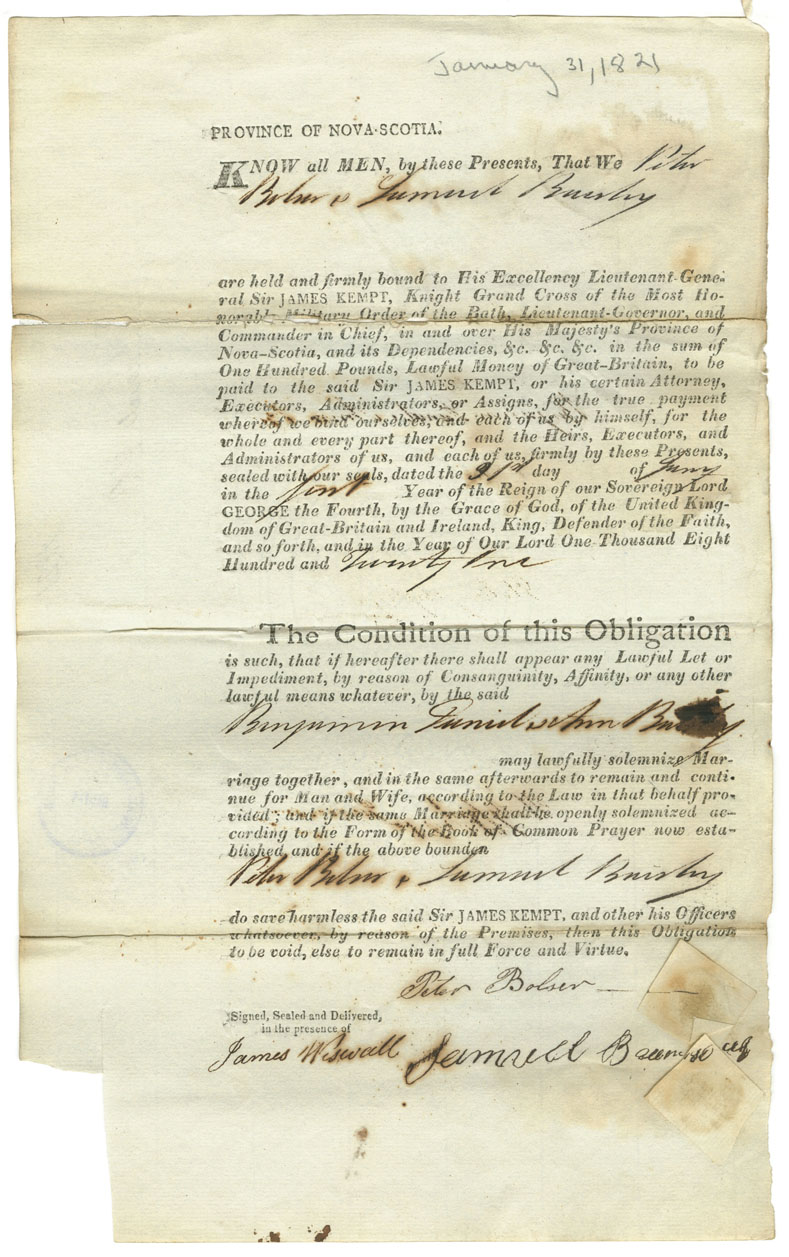 January 31, 1821
PROVINCE OF NOVA-SCOTIA.
KNOW all MEN, by these Presents, That We Peter
Bolser & Samuel
are held and firmly bound to His Excellency Lieutenant-Gene-
ral Sir JAMES KEMPT, Knight Grand Cross of the Most Ho-
norable Military Order of the Bath, Lieutenant-Governor, and
Commander in Chief, in and over His Majesty's Province of
Nova-Scotia, and its Dependencies, &c. &c. &c. in the sum of
One Hundred Pounds, Lawful Money of Great-Britain, to be
paid to the said Sir JAMES KEMPT, or his certain Attorney,
Executors, Administrators, or Assigns, for the true payment
whereof we bind ourselves, and each of us by himself, for the
whole and every part thereof, and the Heirs, Executors, and
Administrators of us, and each of us, firmly by these Presents,
sealed with our seals, dated the 31st day of Jany
in the first Year of the Reign of our Sovereign Lord
GEORGE the Fourth, by the Grace of God, of the United King-
dom of Great-Britain and Ireland, King, Defender of the Faith,
and so forth, and in the Year of Our Lord One Thousand Eight
Hundred and Twenty One
The Condition of this Obligation
is such, that if hereafter there shall appear any Lawful Let or
Impediment, by reason of Consanguinity, Affinity, or any other
lawful means whatever, by the said
Benjamin Daniels & Ann
may lawfully solemnize Mar-
riage together, and in the same afterwards to remain and conti-
nue for Man and Wife, according to the Law in that behalf pro-
vided; and if the same Marriage shall be openly solemnized ac-
cording to the Form of the Book of Common Prayer now esta-
blished, and if the above bounden
Peter Bolser & Samuel
do save harmless the said Sir JAMES KEMPT, and other his Officers
whatsoever, by reason of the Premises, then this Obligation
to be void, else to remain in full Force and Virtue.
Peter Bolser
Signed, Sealed and Delivered,
in the presence of
James Wiswall Samuell